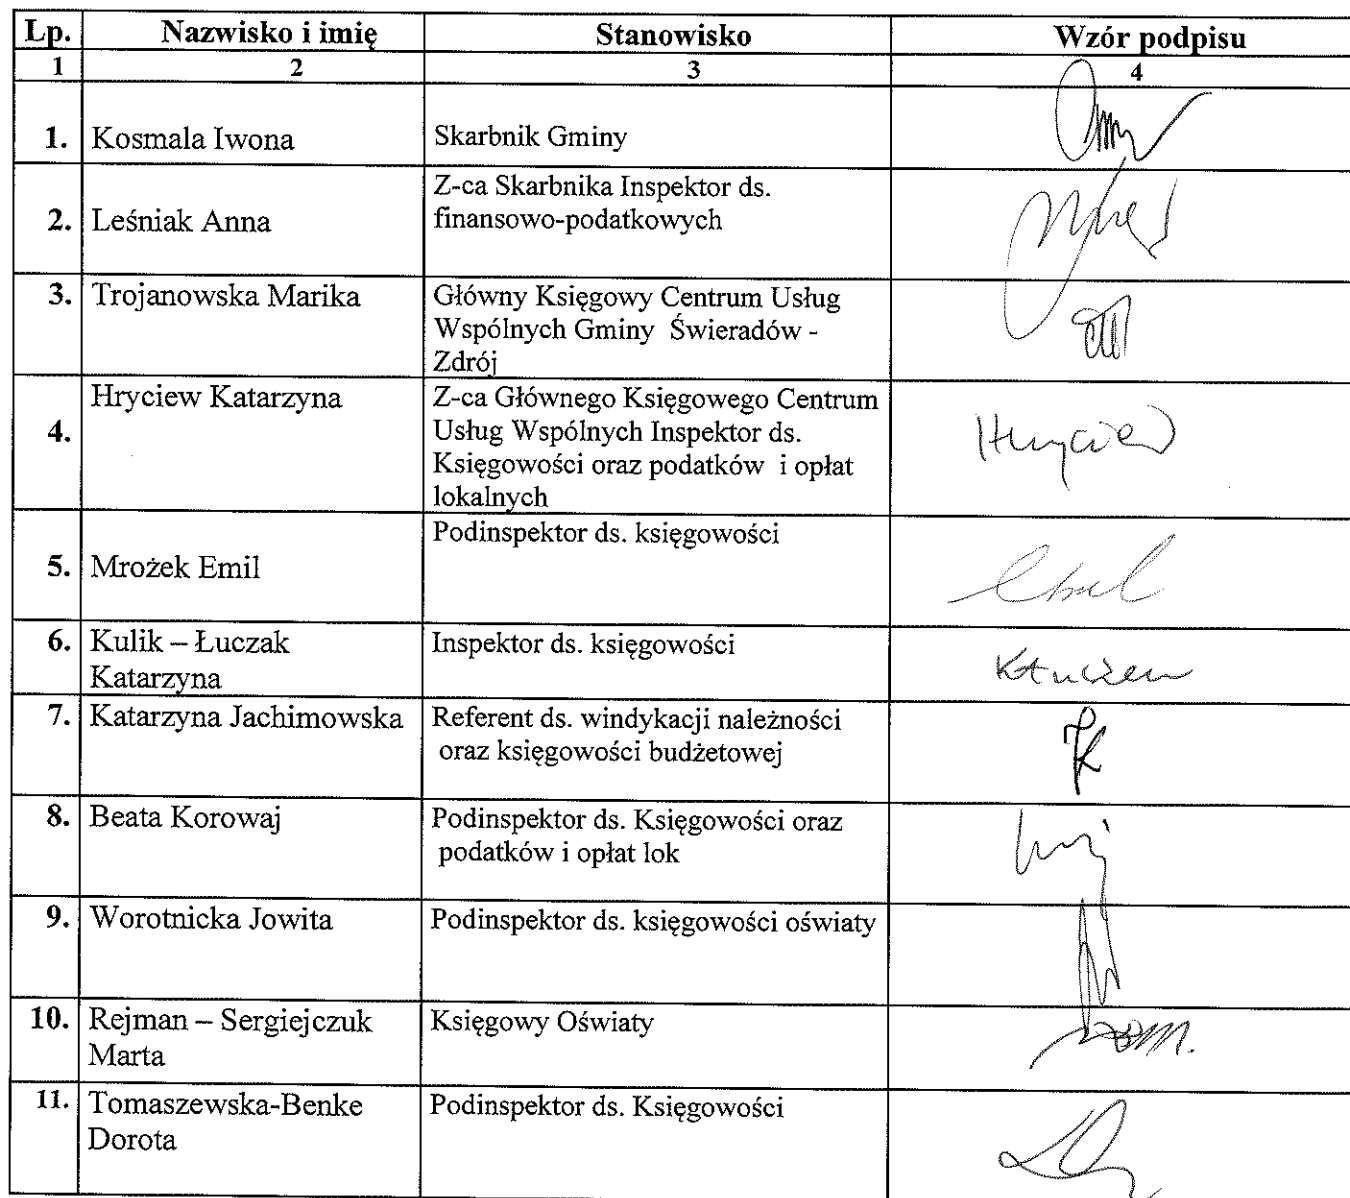 Lp. Nazwisko i imię Stanowisko Wzór podpisu
1 2 3 4
1. Kosmala Iwona Skarbnik Gminy
Z-ca Skarbnika Inspektor ds.
2. Leśniak Anna finansowo-podatkowych
3. Trojanowska Marika Główny Księgowy Centrum Usług
Wspólnych Gminy Świeradów -
Zdrój
Hryciew Katarzyna Z-ca Głównego Księgowego Centrum
4. Usług Wspólnych Inspektor ds.
Księgowości oraz podatków i opłat
lokalnych
Podinspektor ds. księgowości
5. Mrożek Emil
6. Kulik – Łuczak Inspektor ds. księgowości
Katarzyna
7. Katarzyna Jachimowska Referent ds. windykacji należności
oraz księgowości budżetowej
8. Beata Korowaj Podinspektor ds. Księgowości oraz
podatków i opłat lok
9. Worotnicka Jowita Podinspektor ds. księgowości oświaty
10. Rejman – Sergiejczuk Księgowy Oświaty
Marta
11. Tomaszewska-Benke Podinspektor ds. Księgowości
Dorota